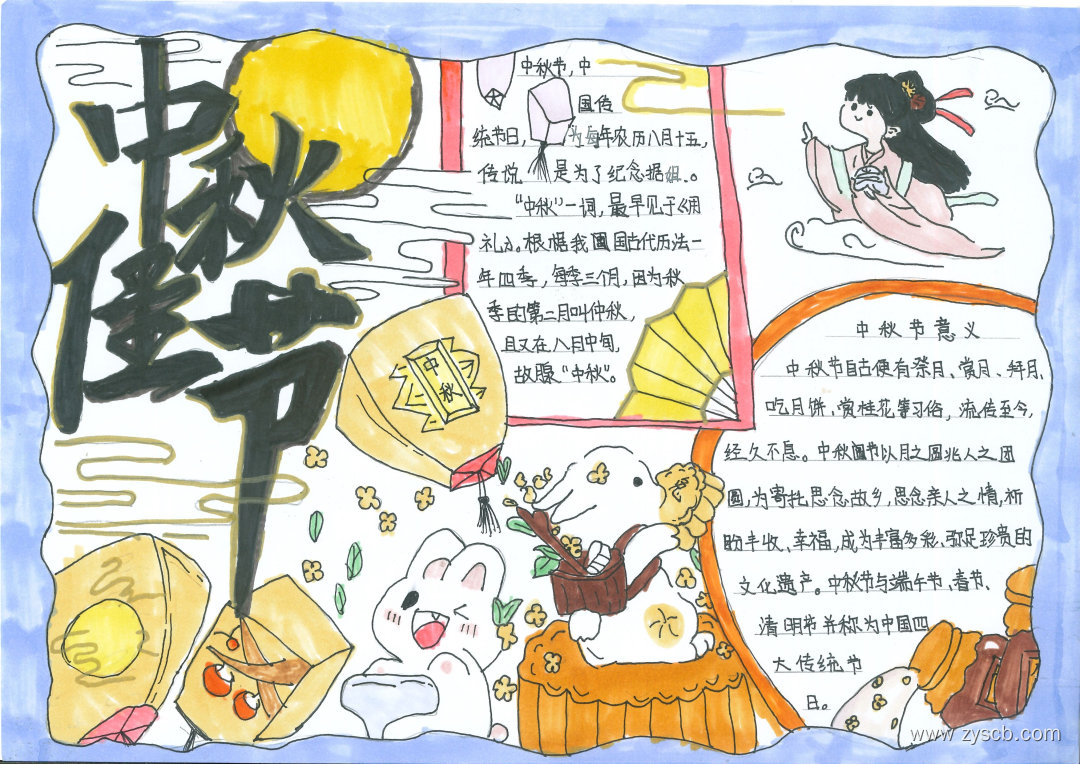 中秋佳节
中秋节,中
国传
统节日, 为每年农历八月十五,
传说 是为了纪念
"中秋"一词,最早见于《周
礼》。根据我国古代历法一
年四季,每季三个月,因为秋
季的第二月叫仲秋,
且又在八月中旬,
故 "中秋"。
中秋
中秋节意义
中秋节自古便有祭月、赏月、拜月、
吃月饼、赏桂花等习俗,流传至今,
经久不息。中秋节以月之圆兆人之团
圆,为寄托思念故乡,思念亲人之情,祈
盼丰收、幸福,成为丰富多彩、弥足珍贵的
文化遗产。中秋节与端午节、春节、
清明节并称为中国四
大传统节
日。
www.zyscb.com